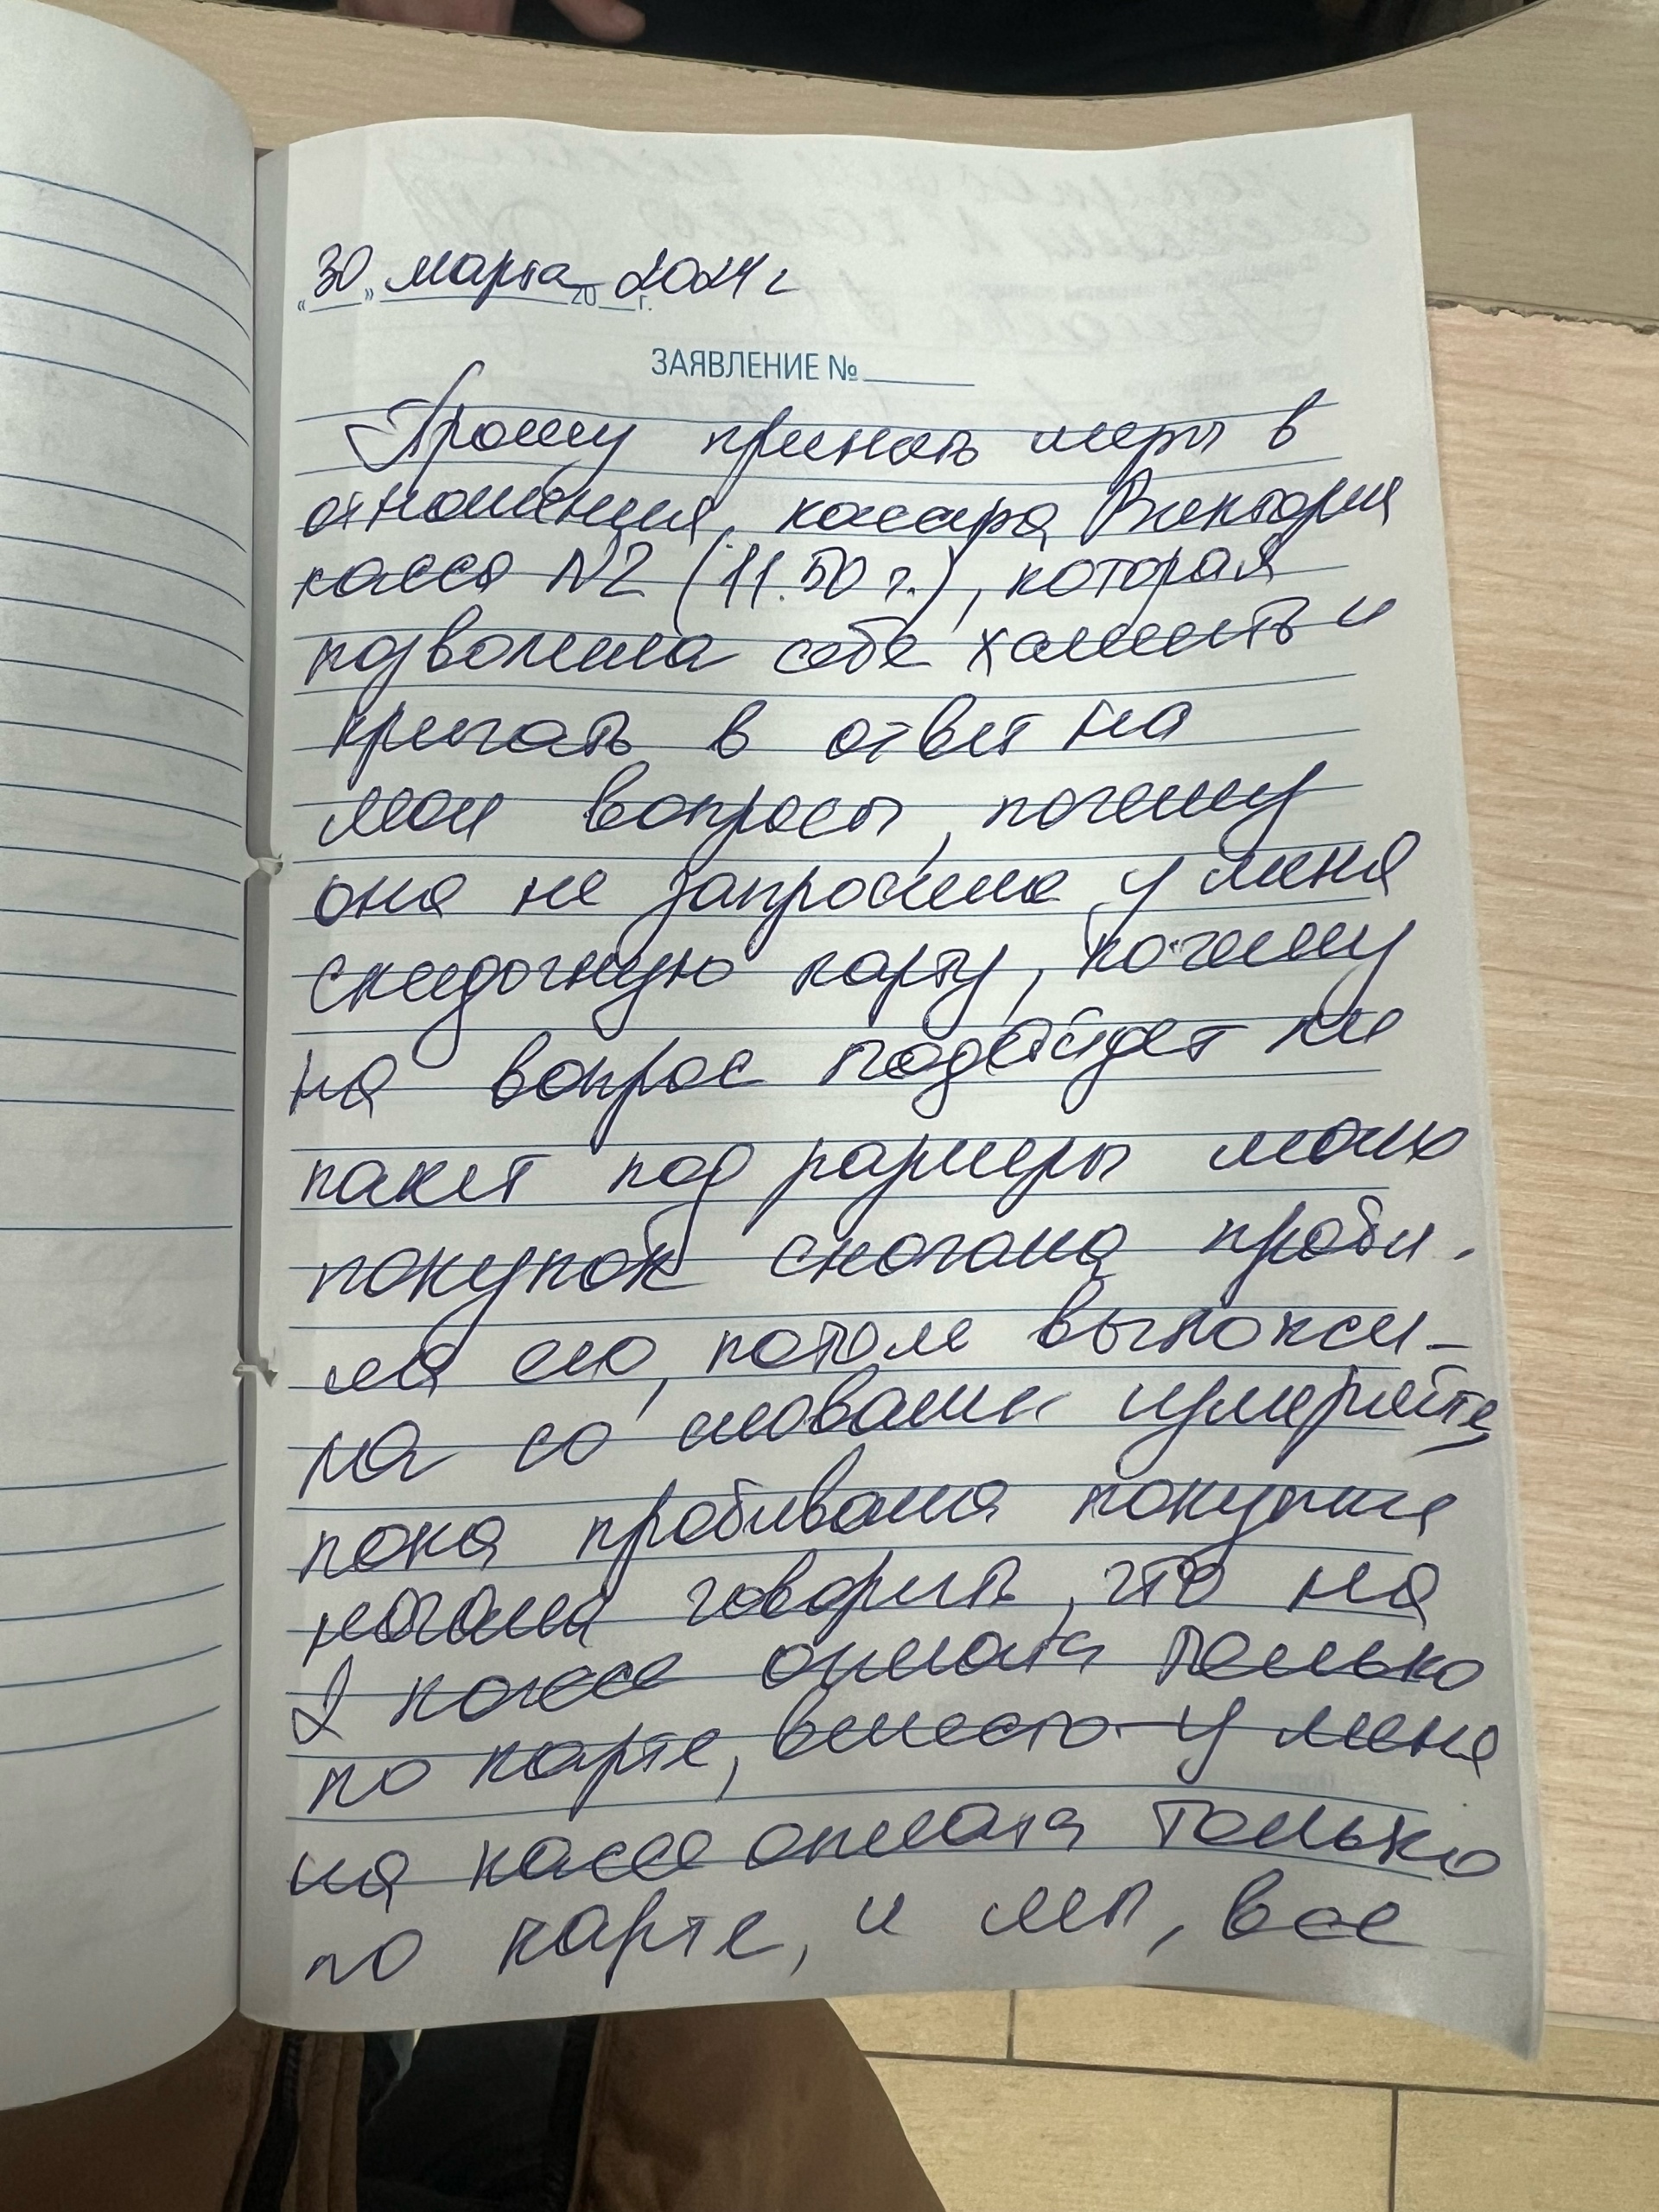 «30» марта 2024 г
20 г.
ЗАЯВЛЕНИЕ №
Прошу принять меры в
отношения, кассира Виктория
касса N2 (11.50 г.), которая
позволила себе хамить и
кричать в ответ на
мои вопросы, почему
она не запросила у меня
скидочную карту, почему
на вопрос подойдет ли
пакет под размеры моих
покупок сначала проби-
ла его, потом выложи-
ла со словами измеряйте
пока пробивала покупки
начала говорить, что на
2 кассе оплата только
по карте, вместо у меня
на кассе оплата только
по карте, и мы, все